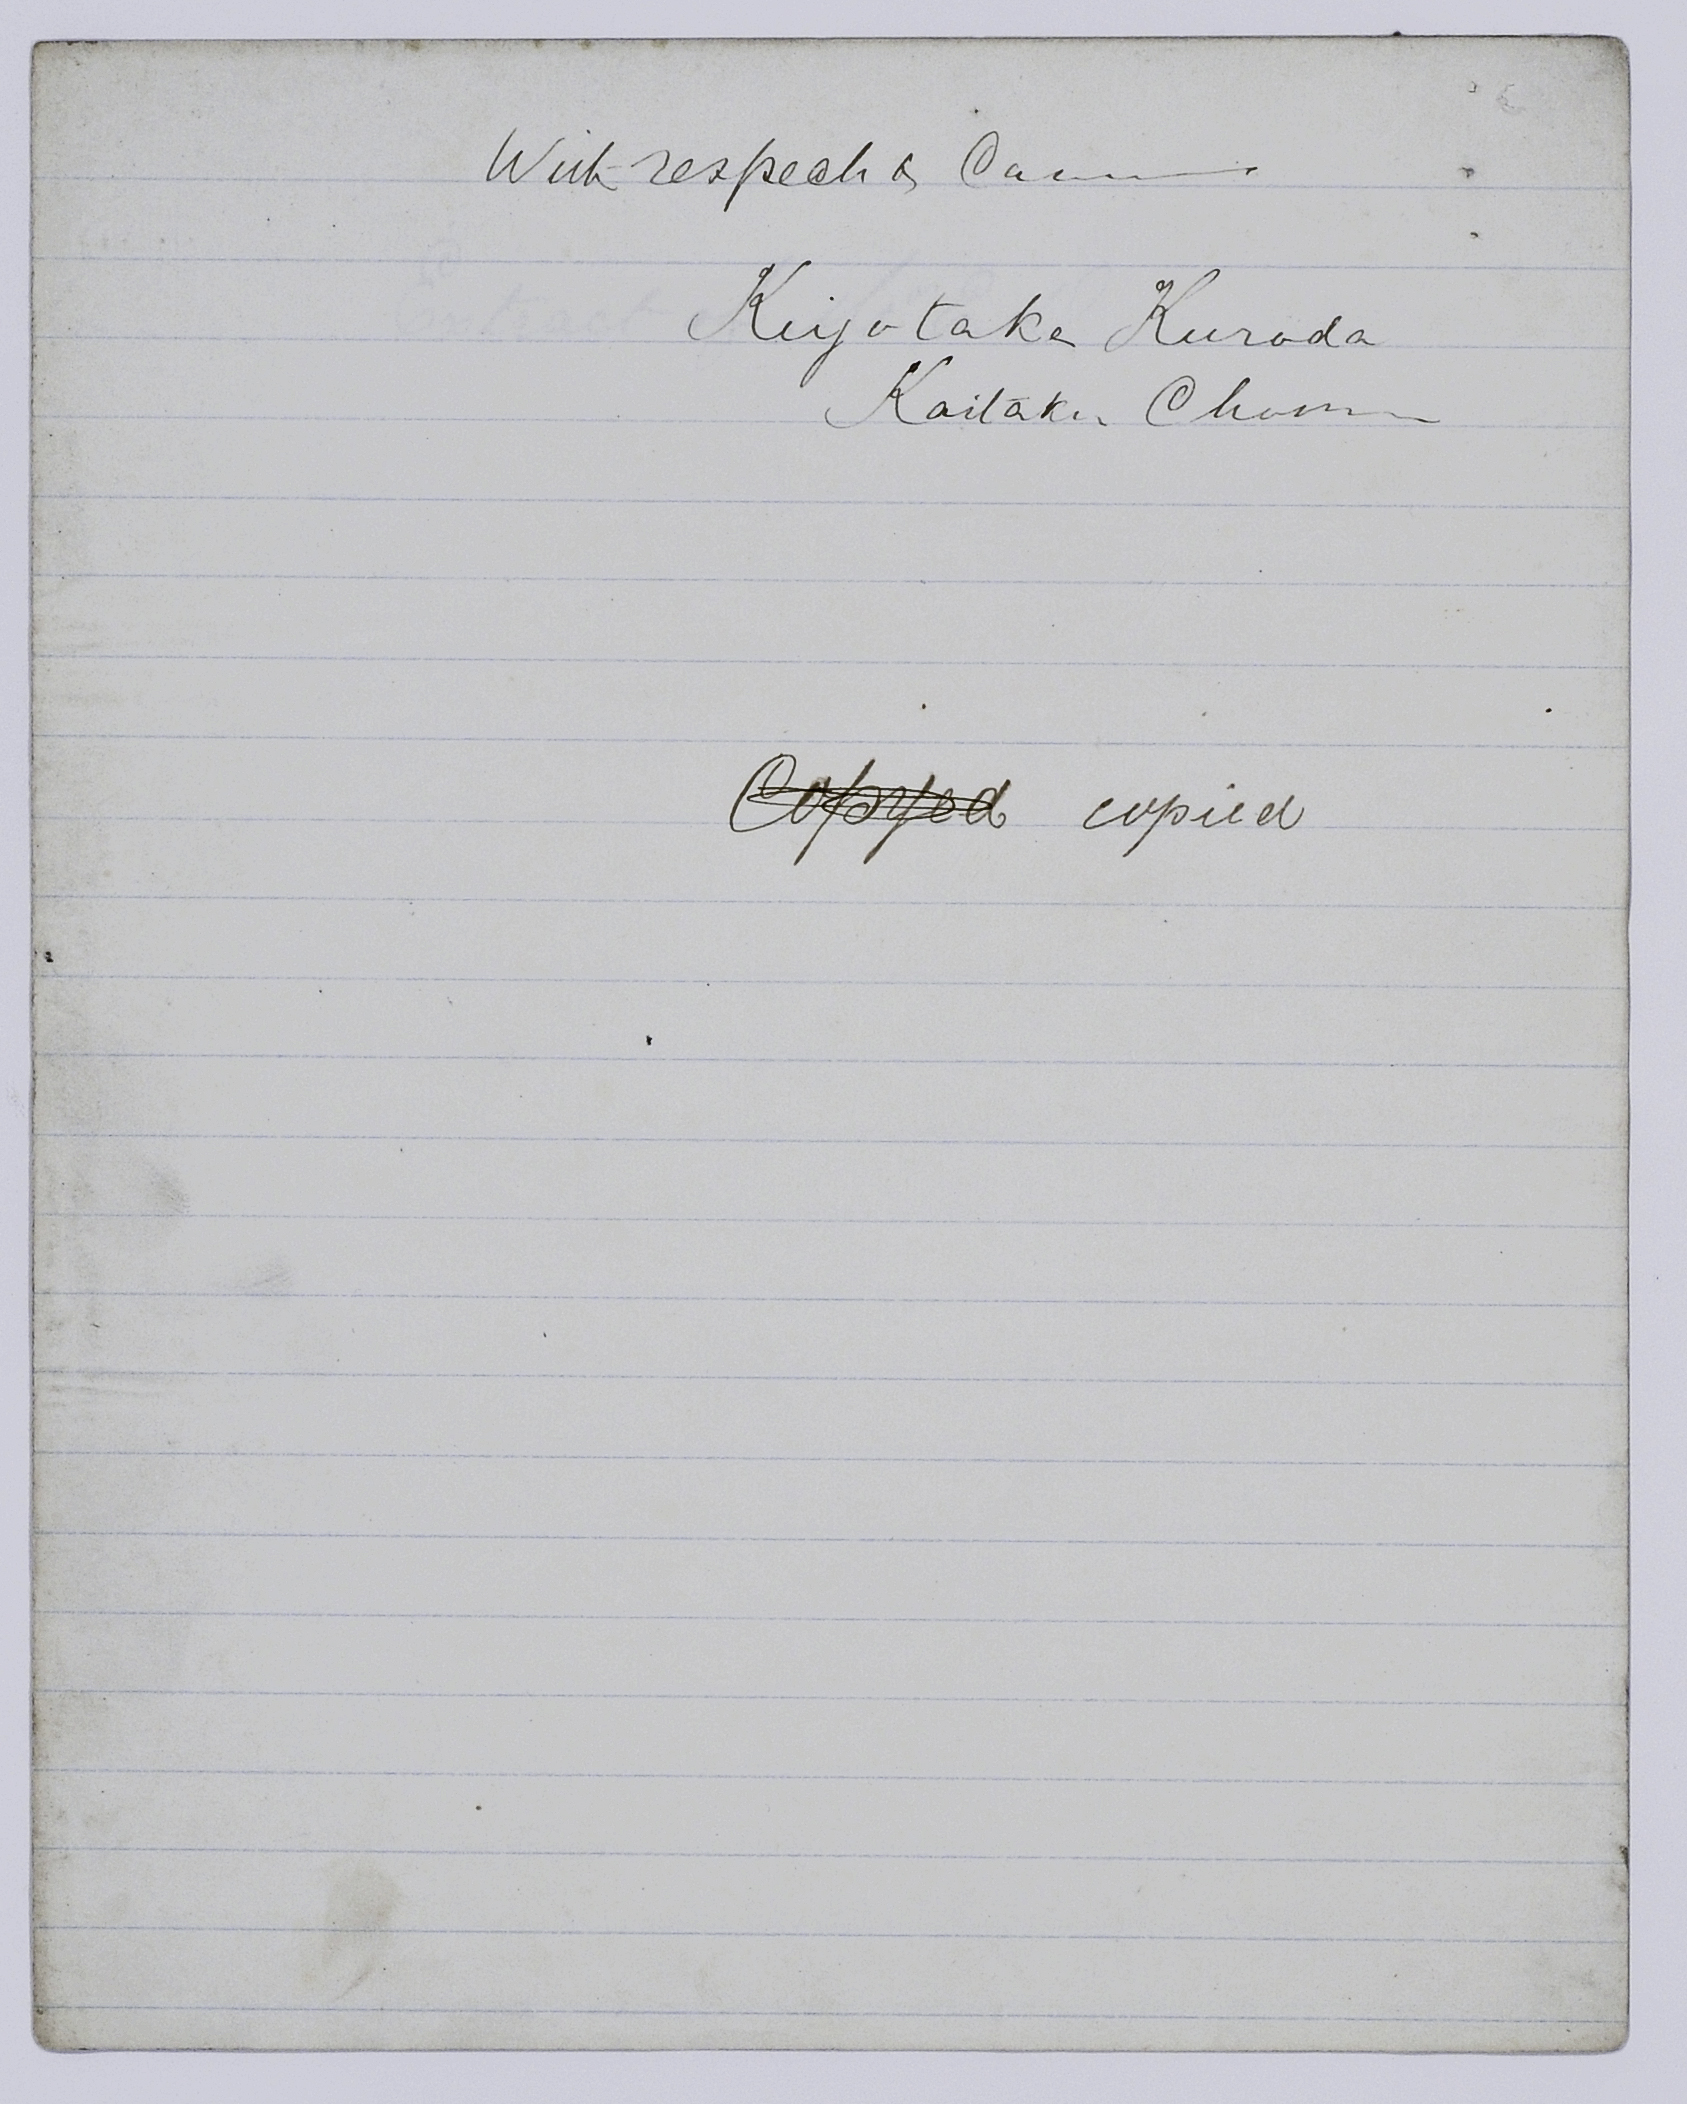 With respect &
Kiyotaka Kuroda
Kaitaku
Copyed copied